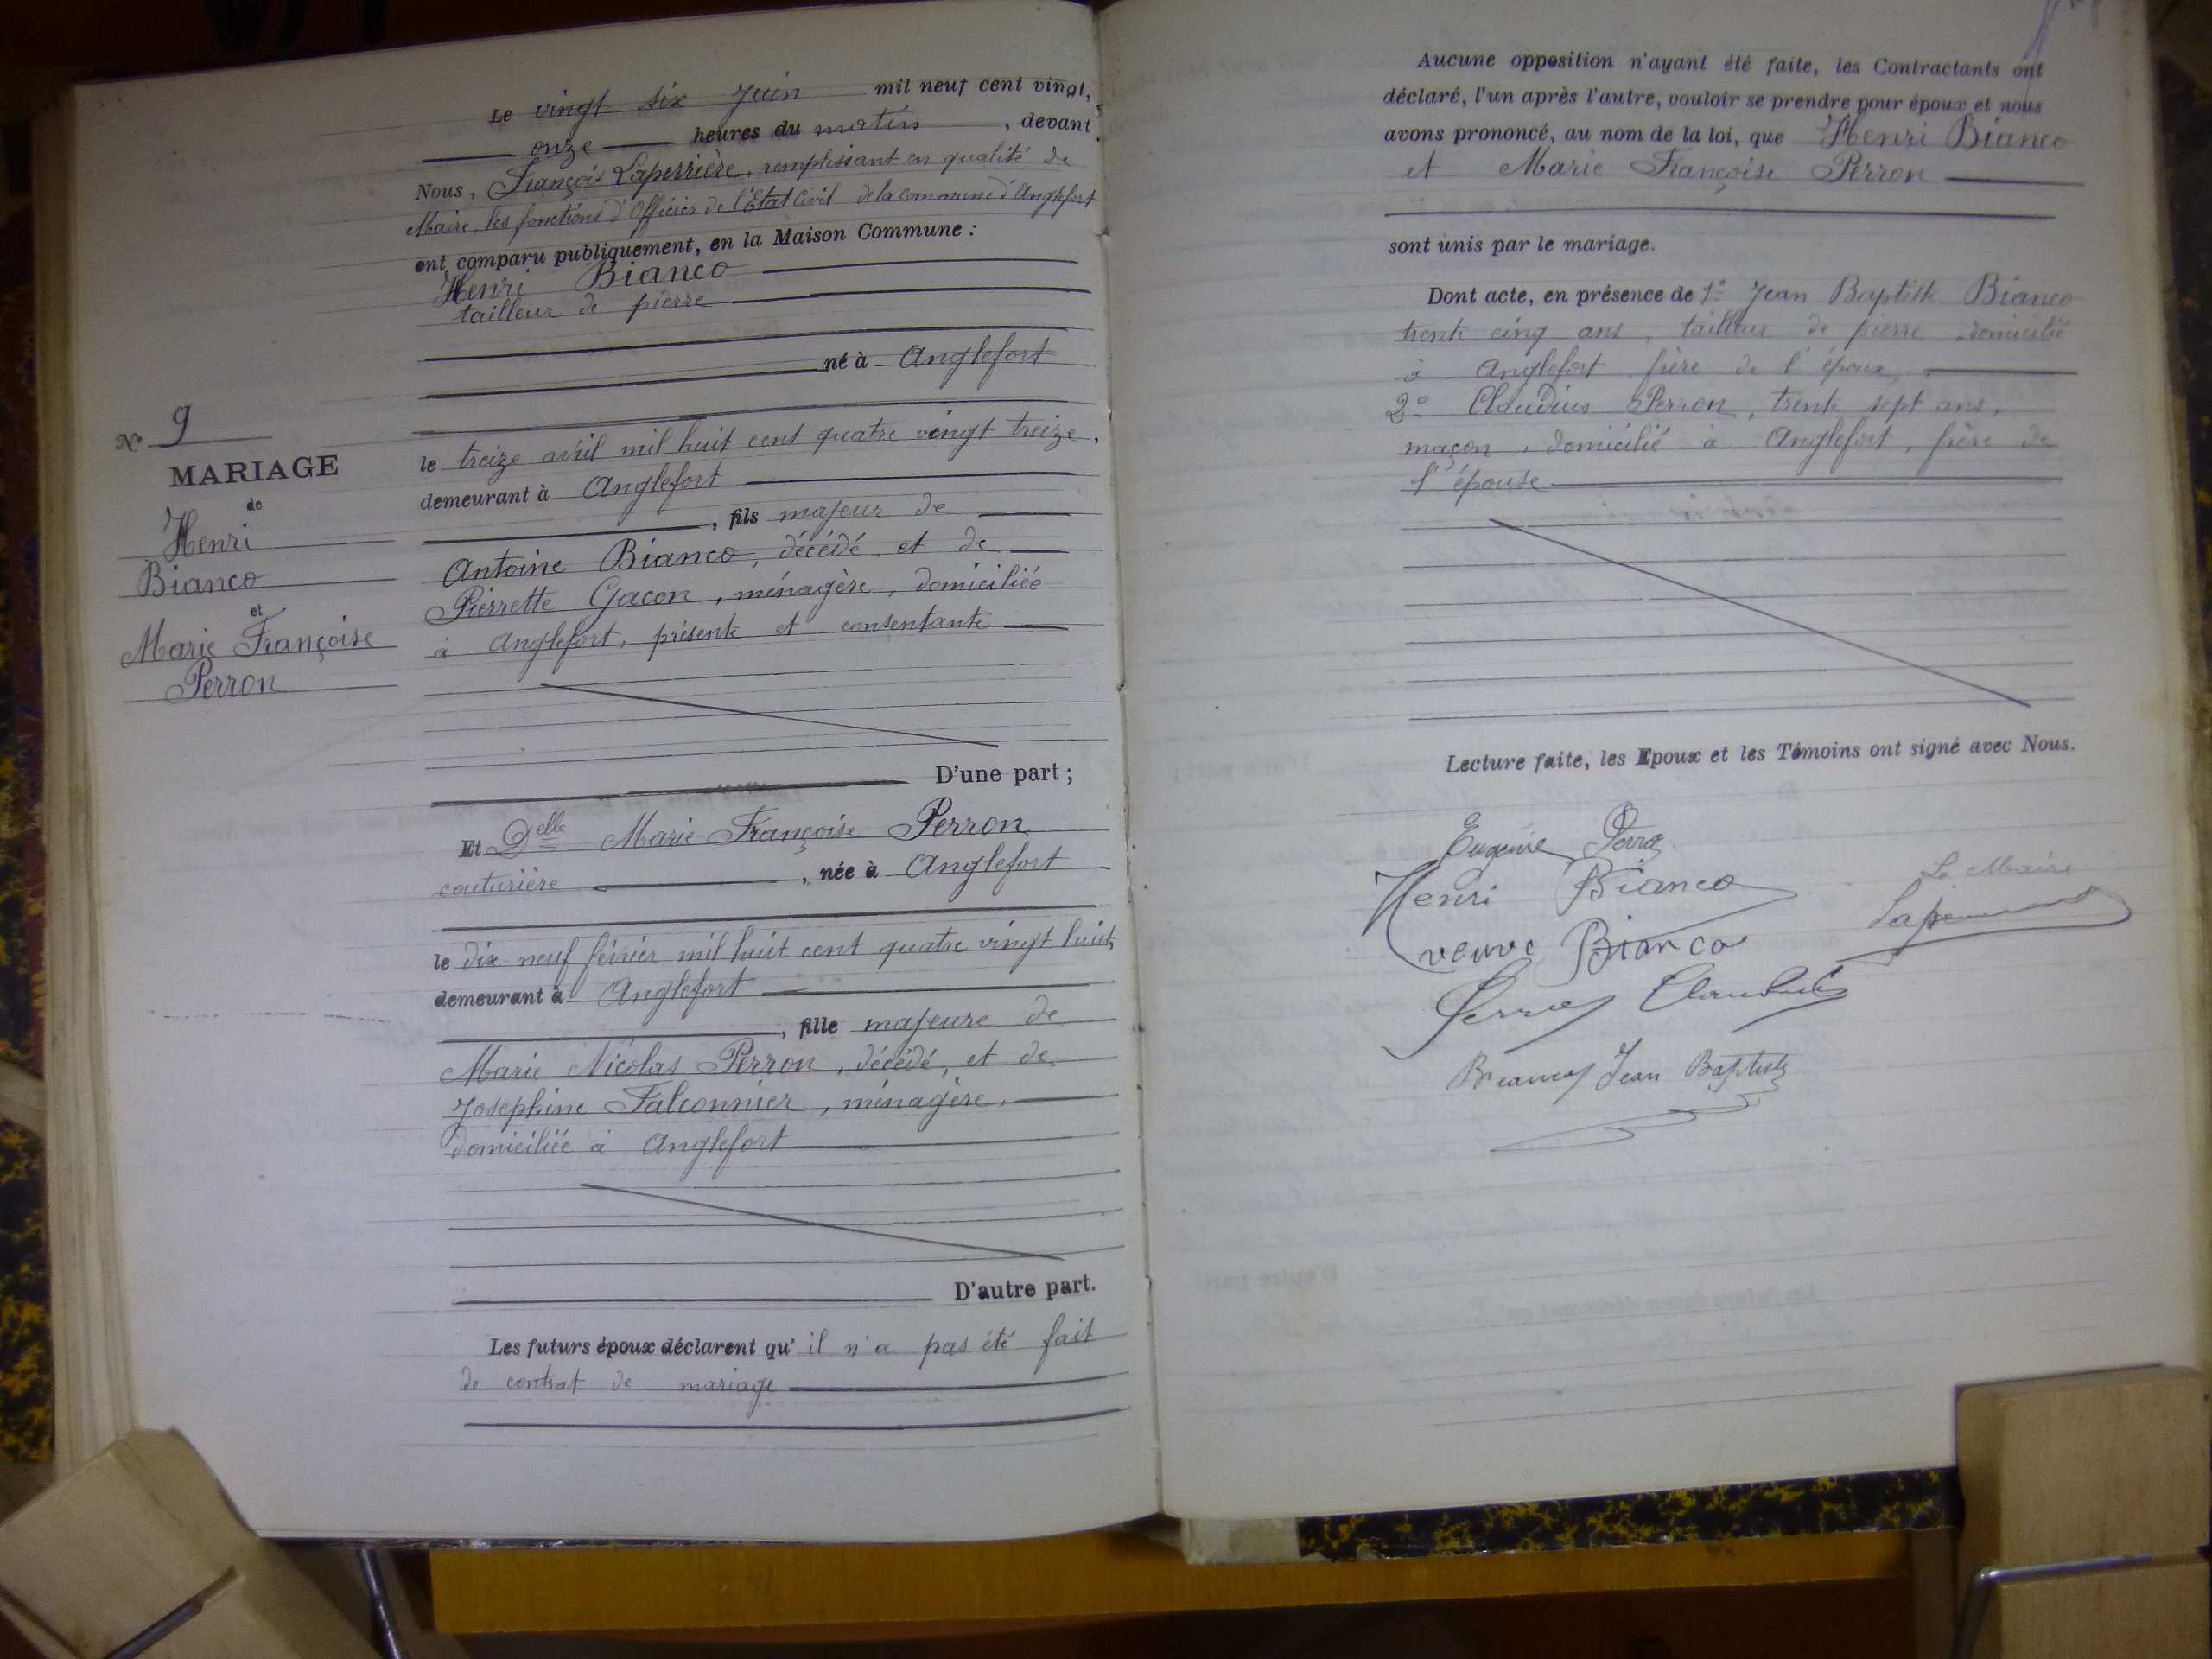 Le vingt six Juin mil neuf cent vingt,
onze heures du matin, devant
Nous, François Laperrière, remplissant en qualité de
Maire, les fonctions d'Officier de l'Etat Civil de la commune d'Anglefort
ont comparu publiquement, en la Maison Commune :
Henri Bianco
tailleur de pierre
né à Anglefort
le treize avril mil huit cent quatre vingt treize,
demeurant à Anglefort
, fils majeur de
Antoine Bianco, décédé, et de
Pierrette Gacon, ménagère, domiciliée
à Anglefort, présente et consentante
D'une part ;
Et Delle Marie Françoise Perron
couturière, née à Anglefort
le dix-neuf février mil huit cent quatre vingt huit,
demeurant à Anglefort
, fille majeure de
Marie Nicolas Perron, décédé, et de
Josephine Falconnier, ménagère,
domiciliée à Anglefort
D'autre part.
Les futurs époux déclarent qu'il n'a pas été fait
de contrat de mariage
N° 9
MARIAGE
de
Henri
Bianco
et
Marie Françoise
Perron
Aucune opposition n'ayant été faite, les Contractants ont
déclaré, l'un après l'autre, vouloir se prendre pour époux et nous
avons prononcé, au nom de la loi, que Henri Bianco
et Marie Françoise Perron
sont unis par le mariage.
Dont acte, en présence de 1° Jean Baptiste Bianco
trente cinq ans, tailleur de pierre, domicilié
à Anglefort frère de l'époux,
2° Claudius Perron, trente sept ans,
maçon, domicilié à Anglefort, frère de
l'épouse
Lecture faite, les Epoux et les Témoins ont signé avec Nous.
Eugénie
Henri Bianco
veuve Bianco
Le Maire
Bianco Jean Baptiste